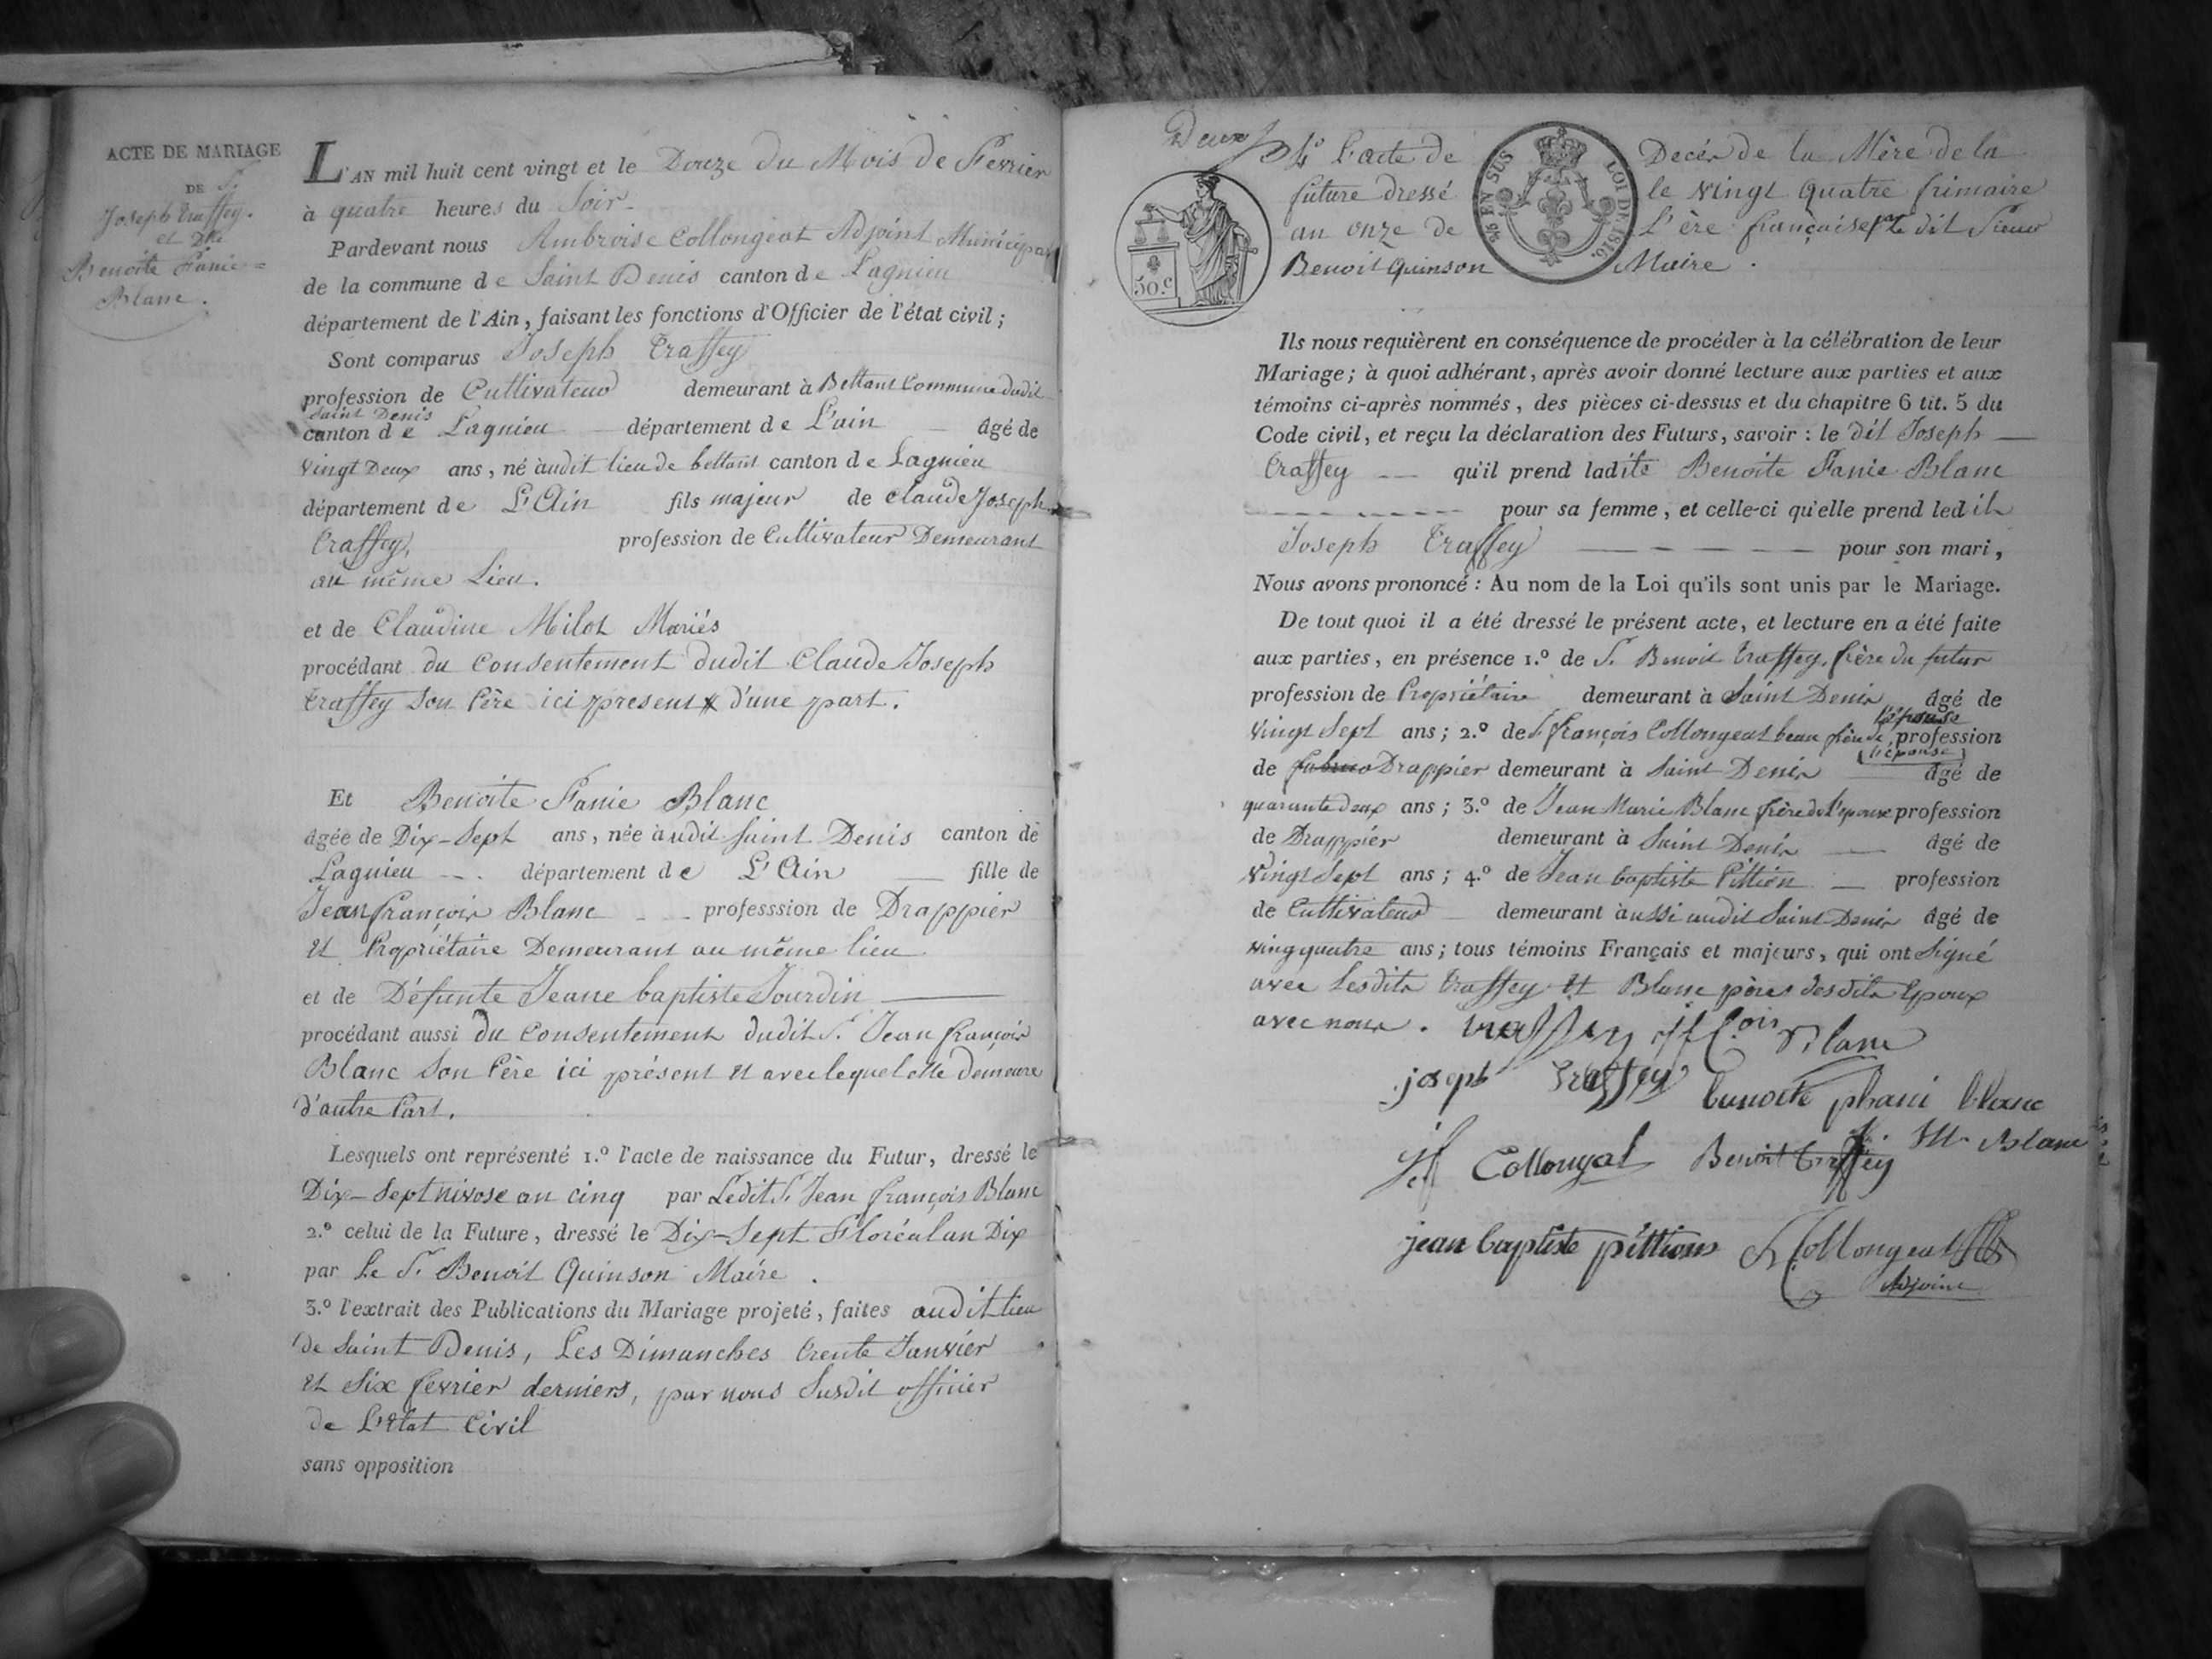 ACTE DE MARIAGE
DE S.
Joseph Traffey.
et Dlle
Benoite Fanie
Blanc.
L'AN mil huit cent vingt et le Douze du Mois de Fevrier
à quatre heures du Soir
Pardevant nous Ambroise Collongeat Adjoint Municipal
de la commune de Saint Denis canton de Lagnieu
département de l'Ain, faisant les fonctions d'Officier de l'état civil;
Sont comparus Joseph Traffey
profession de Cultivateur demeurant à Bettant Commune dudit
Saint Denis
canton de Lagnieu département de L'ain âgé de
vingt Deux ans, né audit lieu de bettant canton de Lagnieu
département de L'Ain fils majeur de Claude Joseph
Traffey, profession de Cultivateur Demeurant
au même Lieu.
et de Claudine Milot Mariés
procédant du Consentement dudit Claude Joseph
Traffey Son Père ici present d'une part.
Et Benoite Fanie Blanc
âgée de Dix-Sept ans, née audit Saint Denis canton de
Lagnieu département de L'Ain fille de
Jean françois Blanc professsion de Drappier
et Propriétaire Demeurant au même lieu
et de Défunte Jeane baptiste Jourdin
procédant aussi du Consentement dudit S. Jean françois
Blanc Son Père ici présent et avec lequel elle demeure
d'autre Part.
Lesquels ont représenté 1.º l'acte de naissance du Futur, dressé le
Dix-Sept nivose an cinq par Ledit S. Jean françois Blanc
2.º celui de la Future, dressé le Dix-Sept Floréal an Dix
par Le S. Benoit Quinson Maire.
3.º l'extrait des Publications du Mariage projeté, faites audit lieu
de Saint Denis, Les Dimanches trente Janvier
et Six fevrier derniers, par nous Susdit officier
de L'Etat Civil
sans opposition
Deux
4º L'acte de Decés de la Mère de la
future dressé le vingt quatre frimaire
an onze de L'ère française le dit Sieur
Benoit Quinson Maire.
50.c
EN SUS
LOI DE 1816.
Ils nous requièrent en conséquence de procéder à la célébration de leur
Mariage; à quoi adhérant, après avoir donné lecture aux parties et aux
témoins ci-après nommés, des pièces ci-dessus et du chapitre 6 tit. 5 du
Code civil, et reçu la déclaration des Futurs, savoir: le dit Joseph
Traffey qu'il prend ladite Benoite Fanie Blanc
pour sa femme, et celle-ci qu'elle prend ledit
Joseph Traffey pour son mari,
Nous avons prononcé: Au nom de la Loi qu'ils sont unis par le Mariage.
De tout quoi il a été dressé le présent acte, et lecture en a été faite
aux parties, en présence 1.º de S. Benoit Traffey, frère du futur
profession de Propriétaire demeurant à Saint Denis âgé de
vingt Sept ans; 2.º de S. françois Collongeat beau frère de profession
l'épouse
de Drappier demeurant à Saint Denis âgé de
quarante deux ans; 3.º de Jean Marie Blanc frère de l'épouse profession
de Drappier demeurant à Saint Denis âgé de
vingt Sept ans; 4.º de Jean baptiste Pittion profession
de Cultivateur demeurant aussi audit Saint Denis âgé de
ving quatre ans; tous témoins Français et majeurs, qui ont Signé
avec Lesdits Traffey et Blanc pères desdits Epoux
avec nous. traffey jf Cois Blanc
joseph traffey benoite phani blanc
jf Collongat Benoit traffey JM Blanc
jean baptiste pittion A Collongeat
Adjoint